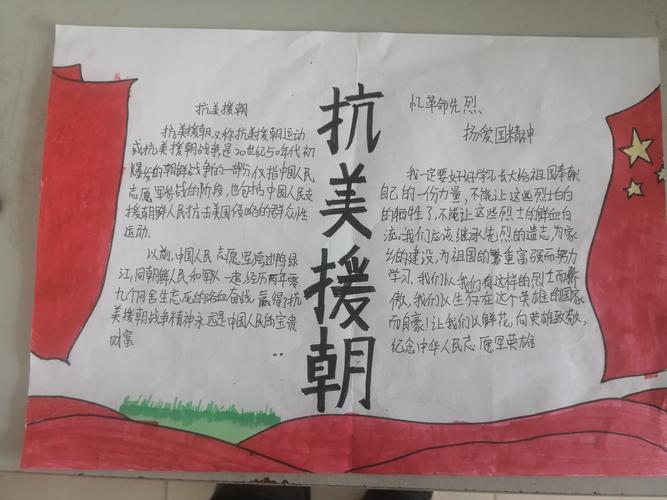 抗美援朝
抗美援朝又称抗美援朝运动
或抗美援朝战争是20世纪50年代初
爆发的朝鲜战争的一部分仅指中国人民
志愿军参战的阶段,也包括中国人民支
援朝鲜人民抗击美国侵略的群众性
运动.
以前,中国人民志愿军跨过鸭绿
江,同朝鲜人民和军队一起,经历两年零
九个月舍生忘死的浴血奋战,赢得了抗
美援朝战争精神永远是中国人民的宝贵
财富
抗美援朝
忆革命先烈
扬爱国精神
我一定要好好学习长大给祖国奉献
自己的一份力量,不能让这些烈士白白
的牺牲了,不能让这些烈士的鲜血白
流.我们应该继承先烈的遗志,为家
乡的建设,为祖国的繁重富强而努力
学习.我们以我们有这样的烈士而骄
傲,我们以生存在这个英雄的国家
而自豪!让我们以鲜花,向英雄致敬,
纪念中华人民志愿军英雄